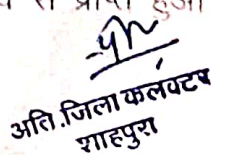 से प्राप्त हुआ
अति.जिला कलक्टर
शाहपुरा